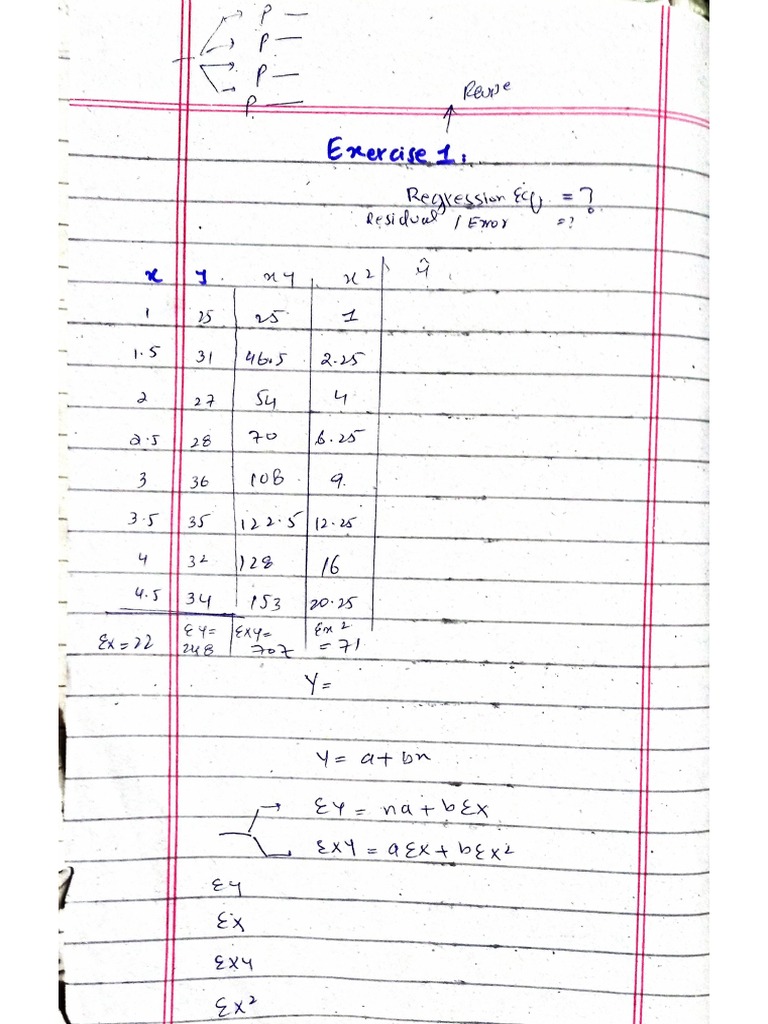 P —
P —
P —
P —
Exercise 1.
Regression Eq = ?
Residual / Error = ?
x y xy x² ŷ
1 25 25 1
1.5 31 46.5 2.25
2 27 54 4
2.5 28 70 6.25
3 36 108 9
3.5 35 122.5 12.25
4 32 128 16
4.5 34 153 20.25
Σx=22 Σy=248 Σxy=707 Σx²=71
Y=
Y = a+bx
ΣY = na+bΣX
ΣXY = aΣX+bΣX²
ΣY
ΣX
ΣXY
ΣX²